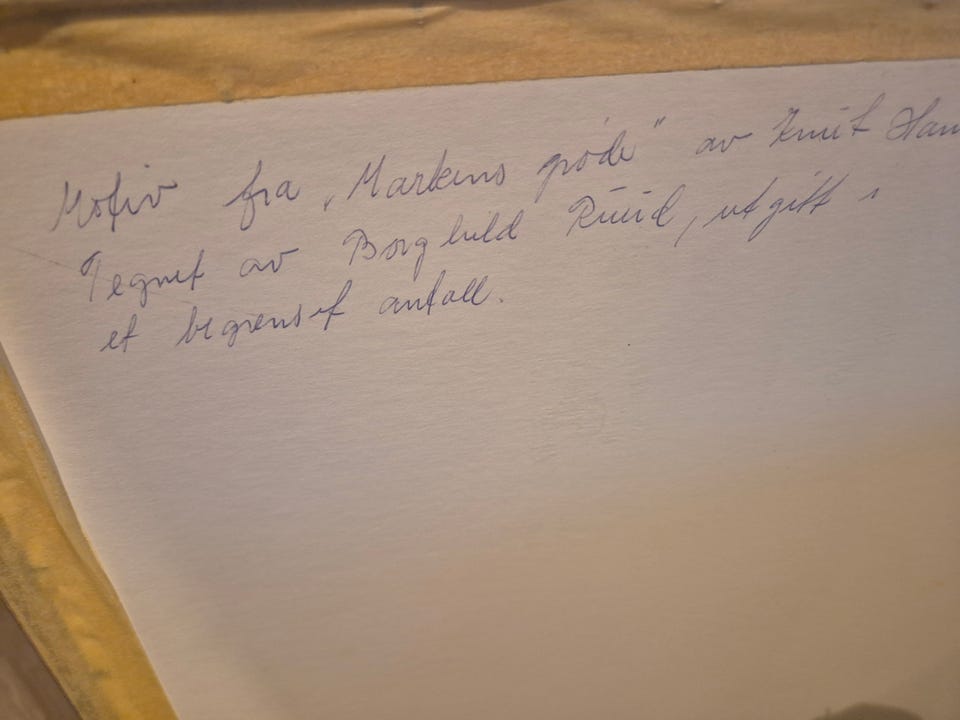 Motiv fra „Markens grøde" av Knut Ham
Tegnet av Borghild Rüüd, utgitt i
et begrenset antall.